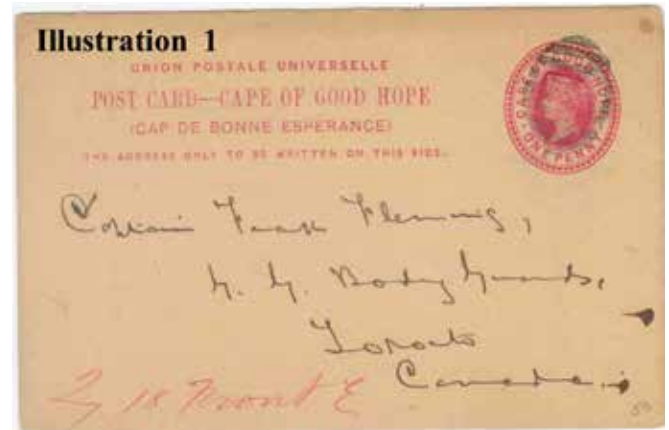 Illustration 1
UNION POSTALE UNIVERSELLE
POST CARD—CAPE OF GOOD HOPE
(CAP DE BONNE ESPERANCE)
THE ADDRESS ONLY TO BE WRITTEN ON THIS SIDE.
CAPE OF GOOD HOPE
ONE PENNY
Captain Frank Fleming,
Body Guards,
Toronto
Canada
18 Front E
50